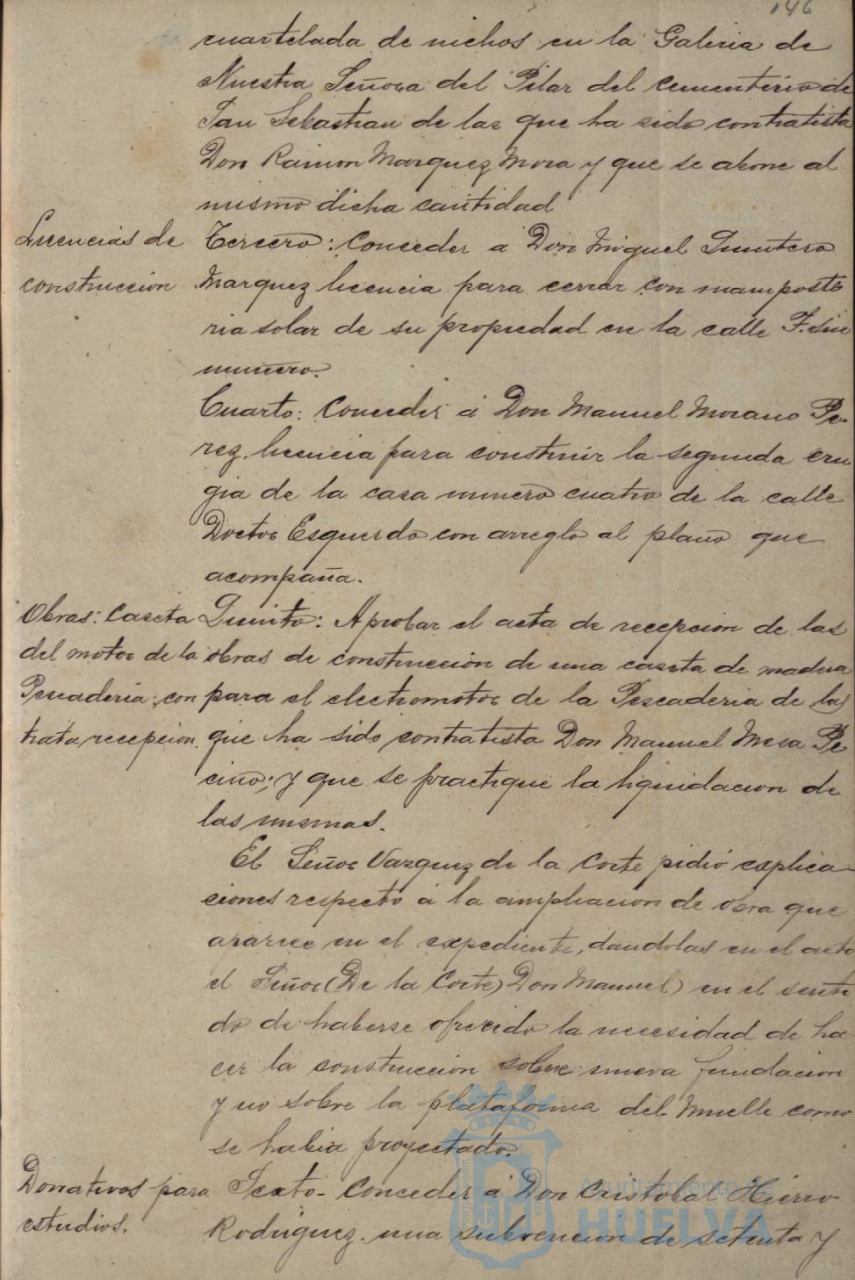 146
cuartelada de nichos en la Galeria de
Nuestra Señora del Pilar del cementerio de
San Sebastian de las que ha sido contratista
Don Ramon Marquez Mora y que se abone al
mismo dicha cantidad
Licencias de
construccion
Tercero: Conceder á Don Miguel Quintero
Marquez licencia para cerrar con mamposte
ria solar de su propiedad en la calle F. sin
número.
Cuarto: Conceder á Don Manuel Morano Pe-
rez, licencia para construir la segunda cru
gia de la casa número cuatro de la calle
Doctor Esquerdo con arreglo al plano que
acompaña.
Obras: Caseta
del motor de la
Pescaderia: con
trata, recepcion.
Quinto: Aprobar el acta de recepcion de las
obras de construcción de una caseta de madera
para el electromotor de la Pescaderia de las
que ha sido contratista Don Manuel Mesa Pe
cino; y que se practique la liquidacion de
las mismas.
El Señor Vazquez de la Corte pidió explica-
ciones respecto á la ampliacion de obra que
aparece en el expediente, dandolas en el acto
el Señor (De la Corte) Don Manuel) en el senti
do de haberse ofrecido la necesidad de ha-
cer la construcción sobre nueva fundacion
y no sobre la plataforma del Muelle como
se habia proyectado.
Donativos para
estudios.
Sexto- Conceder á Don Cristobal Hierro
Rodriguez una subvencion de setenta y
Ayuntamiento de
HUELVA